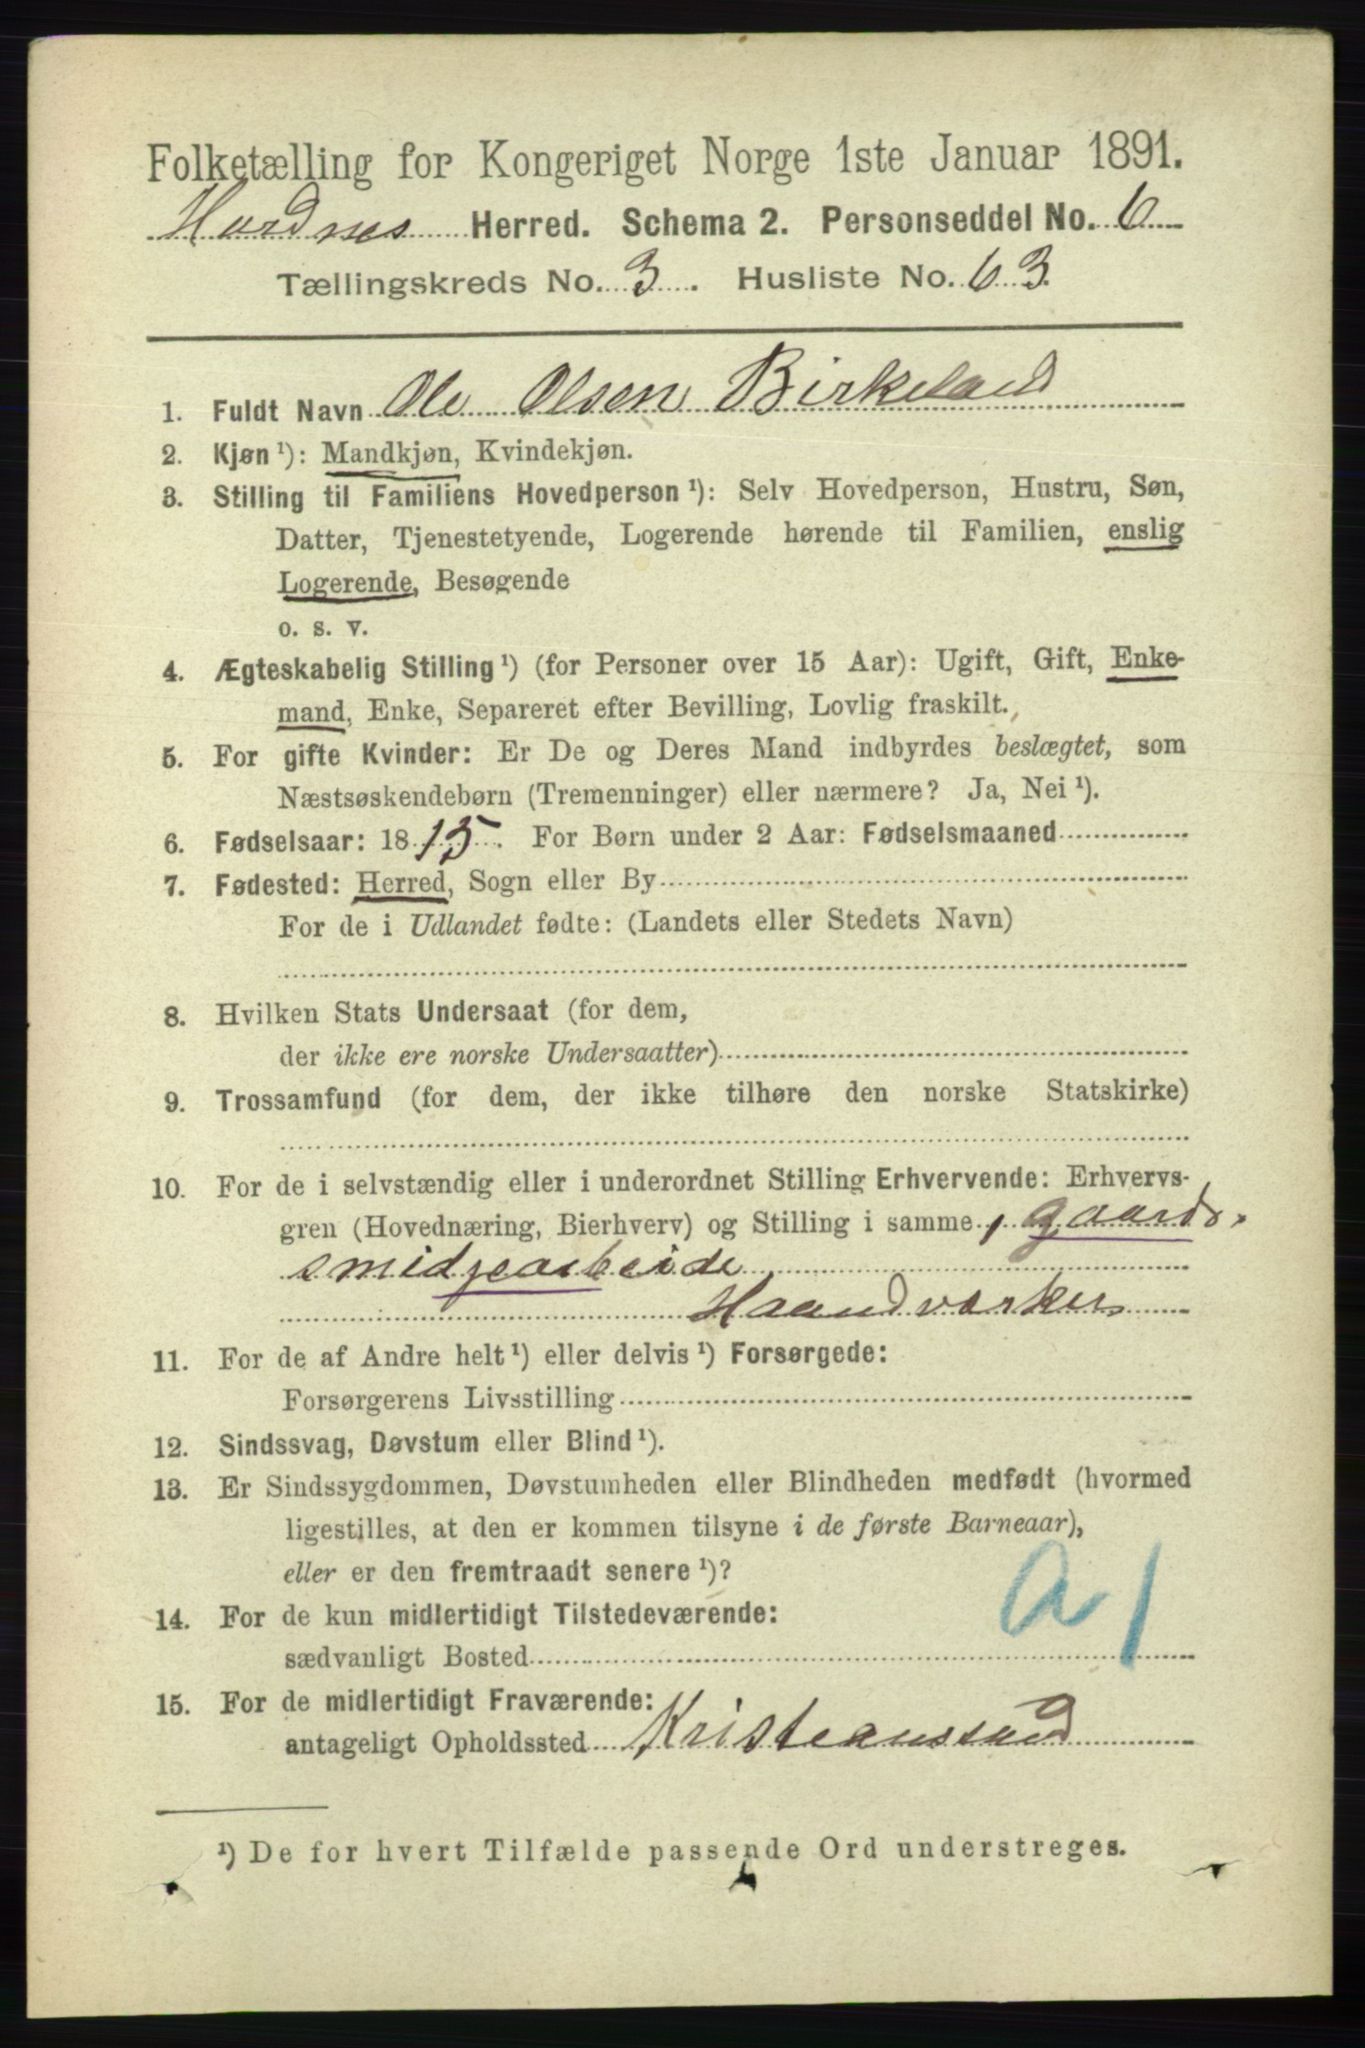 Folketælling for Kongeriget Norge 1ste Januar 1891.
Herred. Schema 2. Personseddel No. 6
Tællingskreds No. 3. Husliste No. 63
1. Fuldt Navn Ole Olsen Birkeland
2. Kjøn ¹): Mandkjøn, Kvindekjøn.
3. Stilling til Familiens Hovedperson ¹): Selv Hovedperson, Hustru, Søn,
Datter, Tjenestetyende, Logerende hørende til Familien, enslig
Logerende, Besøgende
o. s. v.
4. Ægteskabelig Stilling ¹) (for Personer over 15 Aar): Ugift, Gift, Enke-
mand, Enke, Separeret efter Bevilling, Lovlig fraskilt.
5. For gifte Kvinder: Er De og Deres Mand indbyrdes beslægtet, som
Næstsøskendebørn (Tremenninger) eller nærmere? Ja, Nei ¹).
6. Fødselsaar: 1815. For Børn under 2 Aar: Fødselsmaaned
7. Fødested: Herred, Sogn eller By
For de i Udlandet fødte: (Landets eller Stedets Navn)
8. Hvilken Stats Undersaat (for dem,
der ikke ere norske Undersaatter)
9. Trossamfund (for dem, der ikke tilhøre den norske Statskirke)
10. For de i selvstændig eller i underordnet Stilling Erhvervende: Erhvervs-
gren (Hovednæring, Bierhverv) og Stilling i samme, gaards
smidjearbeide
Haandværker
11. For de af Andre helt ¹) eller delvis ¹) Forsørgede:
Forsørgerens Livsstilling
12. Sindssvag, Døvstum eller Blind ¹).
13. Er Sindssygdommen, Døvstumheden eller Blindheden medfødt (hvormed
ligestilles, at den er kommen tilsyne i de første Barneaar),
eller er den fremtraadt senere ¹)?
14. For de kun midlertidigt Tilstedeværende:
sædvanligt Bosted
a 1
15. For de midlertidigt Fraværende:
antageligt Opholdssted Kristeanssand
¹) De for hvert Tilfælde passende Ord understreges.